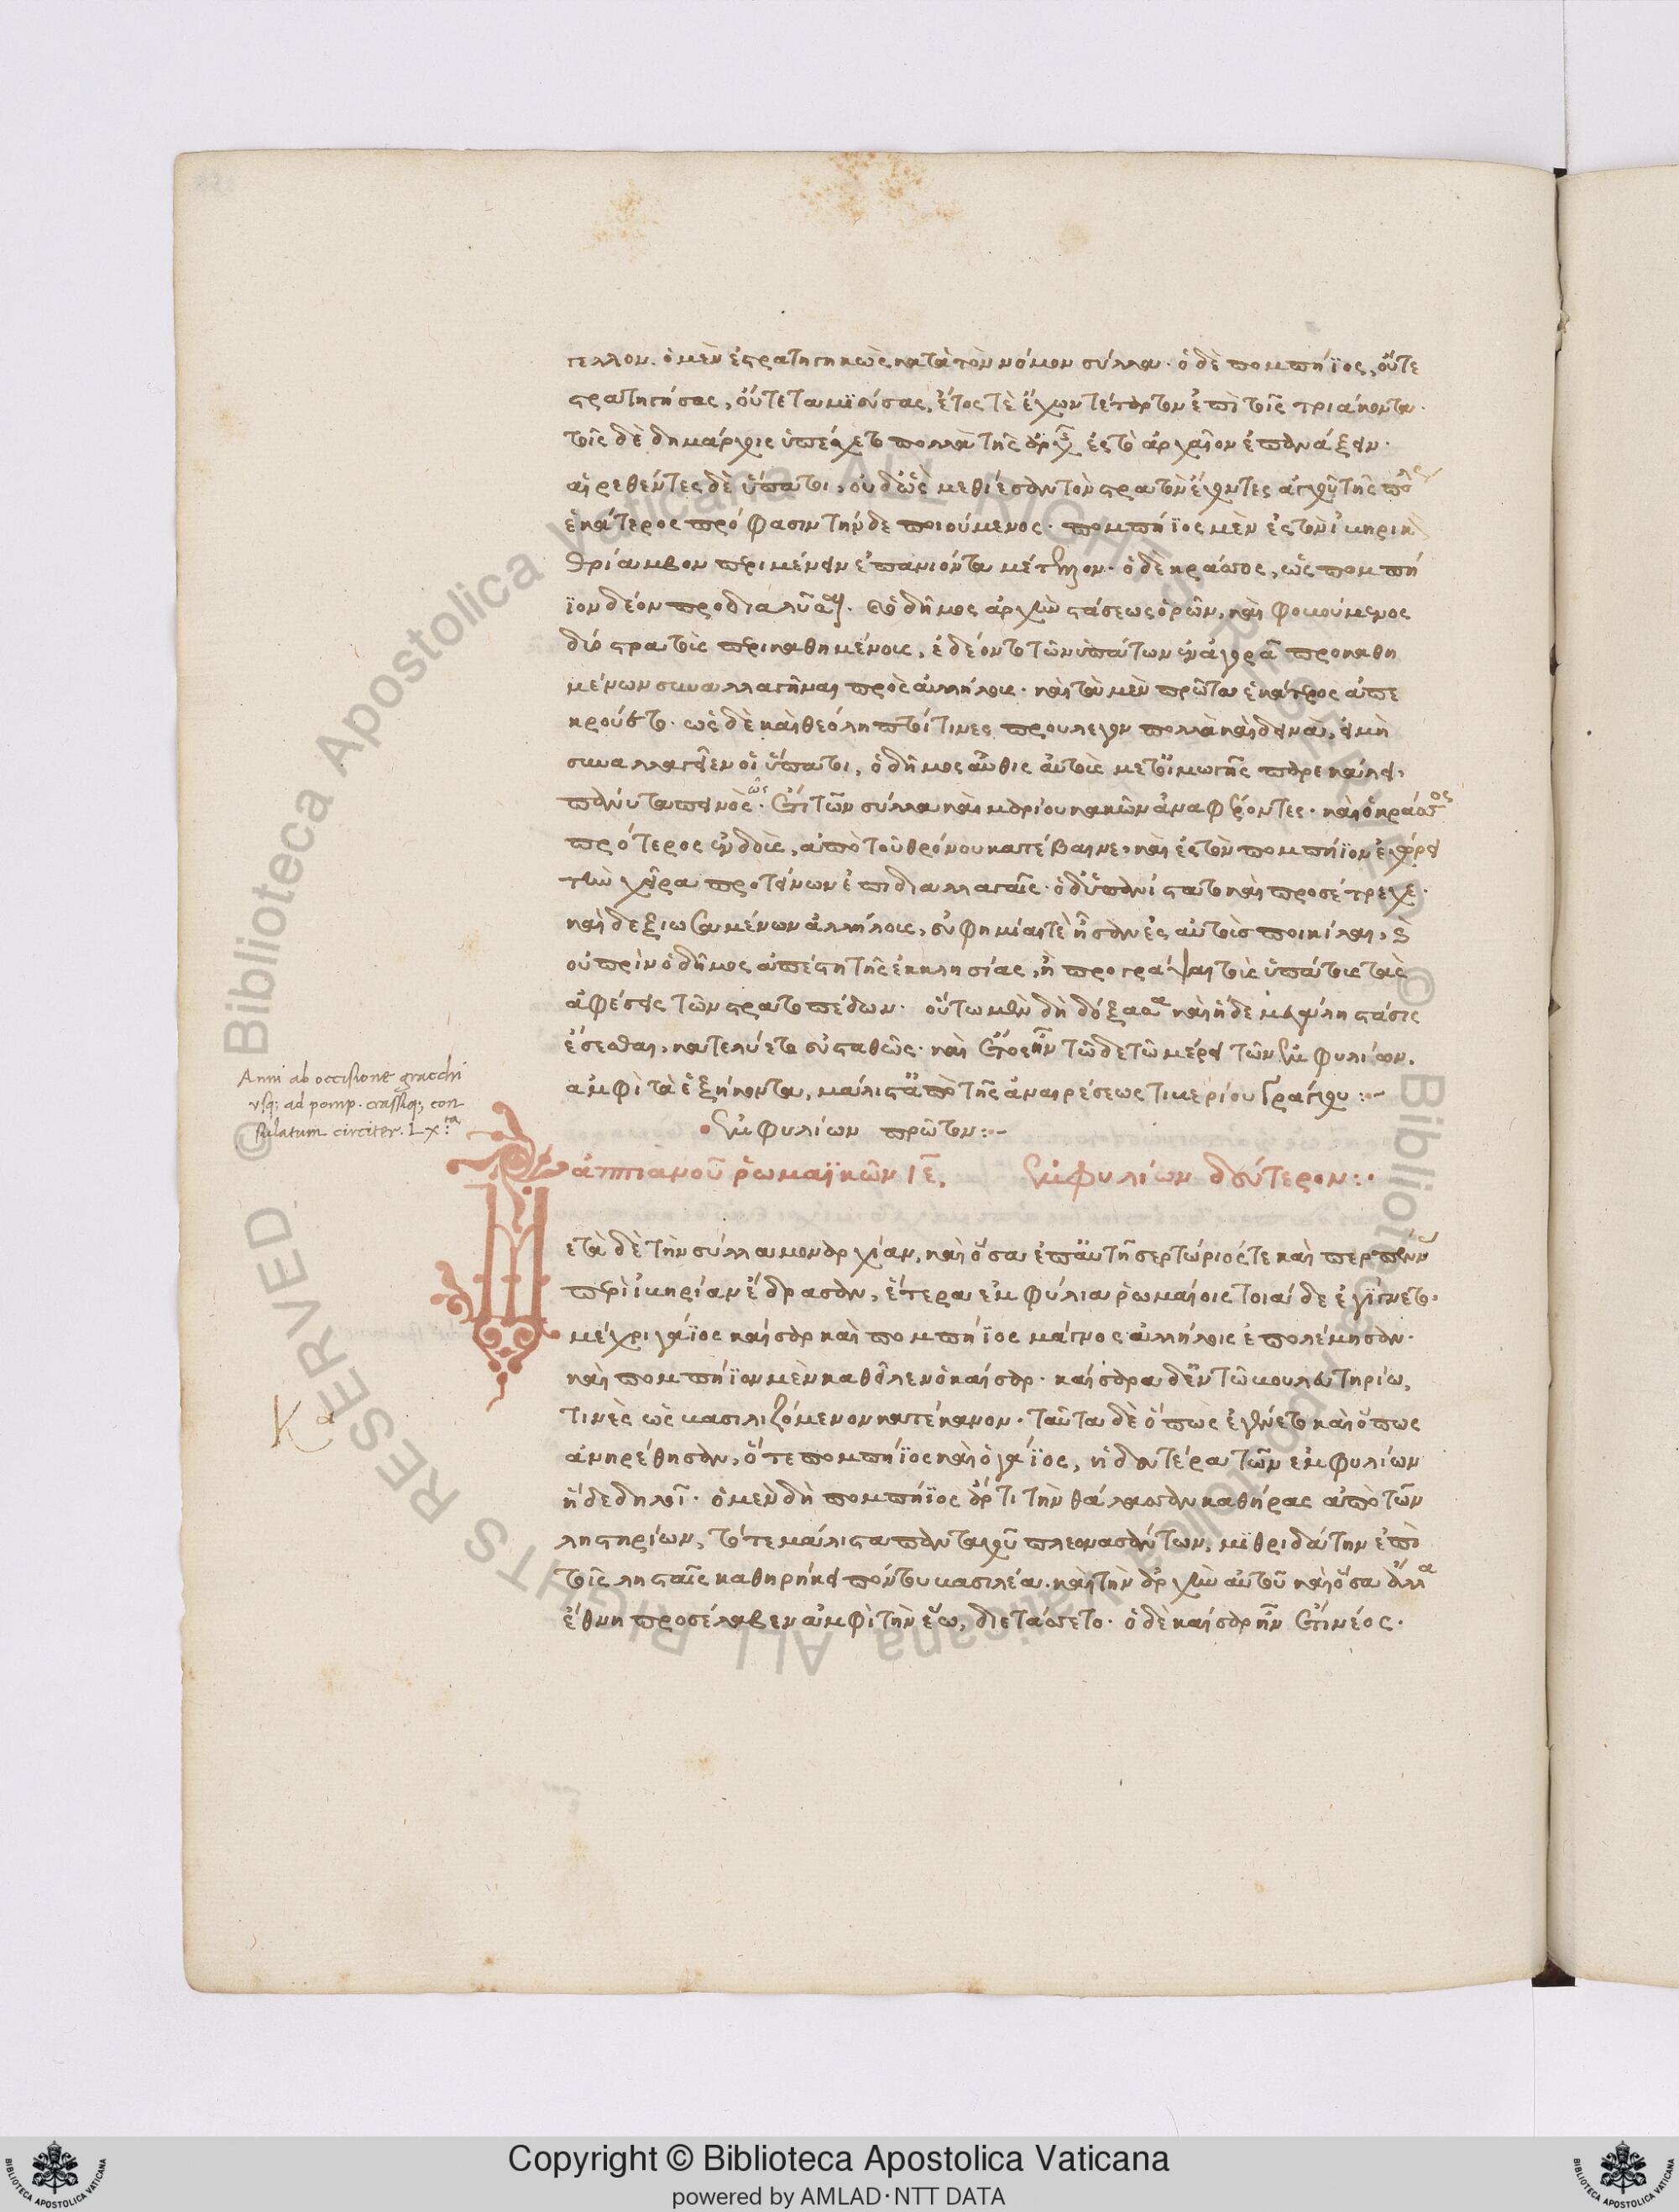 γελλον. ὁ μὲν ἐστρατηγηκὼς κατὰ τὸν νόμον σύλλα· ὁ δὲ πομπήϊος, οὔτε
στρατηγήσας, οὔτε ταμιεύσας, ἔτος τὲ ἔχων τέταρτον ἐπὶ τοῖς τριάκοντα·
τοῖς δὲ δημάρχοις ὑπέσχετο πολλὰ τῆς ἀρχῆς ἐς τὸ ἀρχαῖον ἐπανάξειν·
αἱρεθέντες δὲ ὕπατοι, οὐδ' ὣς μεθίεσαν τὸν στρατὸν ἔχοντες ἀγχοῦ τῆς πόλεως
ἑκάτερος πρόφασιν τήνδε ποιούμενος· πομπήϊος μὲν ἐς τὸν ἰβηρικὸν
θρίαμβον περιμένειν ἐπανιόντα μέτελλον· ὁ δὲ κράσσος, ὡς πομπή
ϊον δέον προδιαλῦσαι· καὶ ὁ δῆμος ἀρχὴν στάσεως ὁρῶν, καὶ φοβούμενος
δύο στρατοὺς περικαθημένους, ἐδέοντο τῶν ὑπάτων ἐν ἀγορᾷ προκαθη
μένων συναλλαγῆναι πρὸς ἀλλήλους· καὶ τὰ μὲν πρῶτα ἑκάτερος ἀπε
κρούετο· ὡς δὲ καὶ θεόληπτοί τινες προύλεγον πολλὰ καὶ δεινά, εἰ μὴ
συναλλαγεῖεν οἱ ὕπατοι, ὁ δῆμος αὖθις αὐτοὺς μετ' οἰμωγῆς παρεκάλει,
πάνυ ταπεινῶς· ἔτι τῶν σύλλα καὶ μαρίου κακῶν ἀναφέροντες· καὶ ὁ κράσσος
πρότερος ἐνδοὺς, ἀπὸ τοῦ θρόνου κατέβαινε, καὶ ἐς τὸν πομπήϊον ἐχώρει
τὴν χεῖρα προτείνων ἐπὶ διαλλαγαῖς· ὁ δ' ὑπανίστατο καὶ προσέτρεχε·
καὶ δεξιωσαμένων ἀλλήλους, εὐφημίαι τὲ ἦσαν ἐς αὐτοὺς ποικίλαι, καὶ
οὐ πρὶν ὁ δῆμος ἀπέστη τῆς ἐκκλησίας, ἢ προγράψαι τοὺς ὑπάτους τὰς
ἀφέσεις τῶν στρατοπέδων· οὕτω μὲν δὴ δόξασα καὶ ἥδε μεγάλη στάσις
ἔσεσθαι, κατελύετο εὐσταθῶς· καὶ ἔτος ἦν τῷδε τῷ μέρει τῶν ἐμφυλίων.
ἀμφὶ τὰ ἑξήκοντα, μάλιστα ἀπὸ τῆς ἀναιρέσεως τιβερίου Γράγχου :-
ἐμφυλίων πρῶτον :-
ἀππιανοῦ ῥωμαϊκῶν ΙΕ. ἐμφυλίων δεύτερον :·
Μετὰ δὲ τὴν σύλλα μοναρχίαν, καὶ ὅσα ἐπ' αὐτῇ σερτώριός τε καὶ περπέννας
περὶ ἰβηρίαν ἔδρασαν, ἕτερα ἐμφύλια ῥωμαίοις τοιάδε ἐγίγνετο·
μέχρι γάϊος καῖσαρ καὶ πομπήϊος μάγνος ἀλλήλοις ἐπολέμησαν·
καὶ πομπήϊον μὲν καθεῖλεν ὁ καῖσαρ· καίσαρα δ' ἐν τῷ βουλευτηρίῳ,
τινὲς ὡς βασιλιζόμενον κατέκανον· ταῦτα δὲ ὅπως ἐγένετο καὶ ὅπως
ἀνῃρέθησαν, ὅ τε πομπήϊος καὶ ὁ γάϊος, ἡ δευτέρα τῶν ἐμφυλίων
ἥδε δηλοῖ· ὁ μὲν δὴ πομπήϊος ἄρτι τὴν θάλασσαν καθήρας ἀπὸ τῶν
λῃστηρίων, τότε μάλιστα πανταχοῦ πλεονασάντων, μιθριδάτην ἐπὶ
τοῖς λῃσταῖς καθῃρήκει πόντου βασιλέα. καὶ τὴν ἀρχὴν αὐτοῦ καὶ ὅσα ἄλλα
ἔθνη προσέλαβεν ἀμφὶ τὴν ἕω, διετάσσετο· ὁ δὲ καῖσαρ ἦν ἔτι νέος·
Anni ab occisione gracchi
usq; ad pomp. crassiq; con
sulatum circiter. Lx.ta